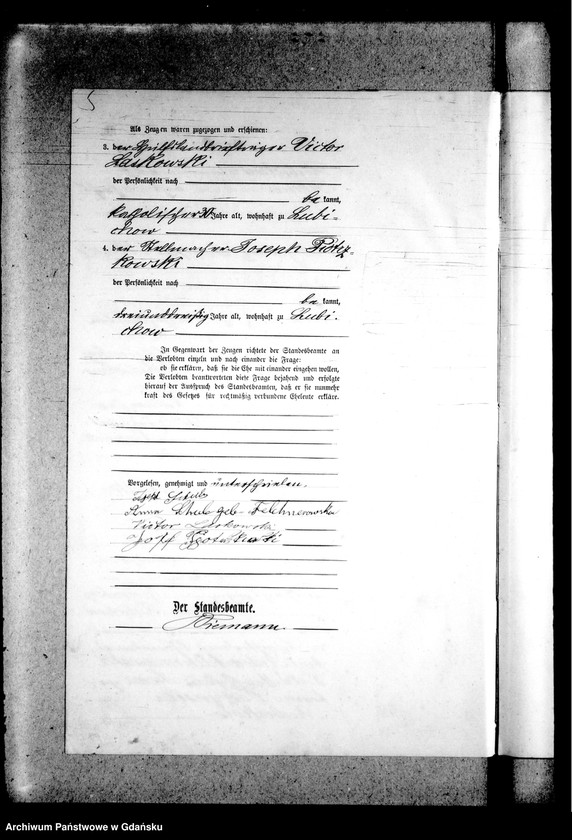 Als Zeugen waren zugezogen und erschienen:
3. der Hülfslandbriefträger Victor
Laskowski
der Persönlichkeit nach
be kannt,
katholischer 30 Jahre alt, wohnhaft zu Lubi-
chow
4. der Stellmacher Joseph Piotz-
kowski
der Persönlichkeit nach
be kannt,
dreiunddreißig Jahre alt, wohnhaft zu Lubi-
chow
In Gegenwart der Zeugen richtete der Standesbeamte an
die Verlobten einzeln und nach einander die Frage:
ob sie erklären, daß sie die Ehe mit einander eingehen wollen,
Die Verlobten beantworteten diese Frage bejahend und erfolgte
hierauf der Ausspruch des Standesbeamten, daß er sie nunmehr
kraft des Gesetzes für rechtmäßig verbundene Eheleute erkläre.
Vorgelesen, genehmigt und unterschrieben.
Anna geb.
Victor Laskowski
Der Standesbeamte.
Archiwum Państwowe w Gdańsku